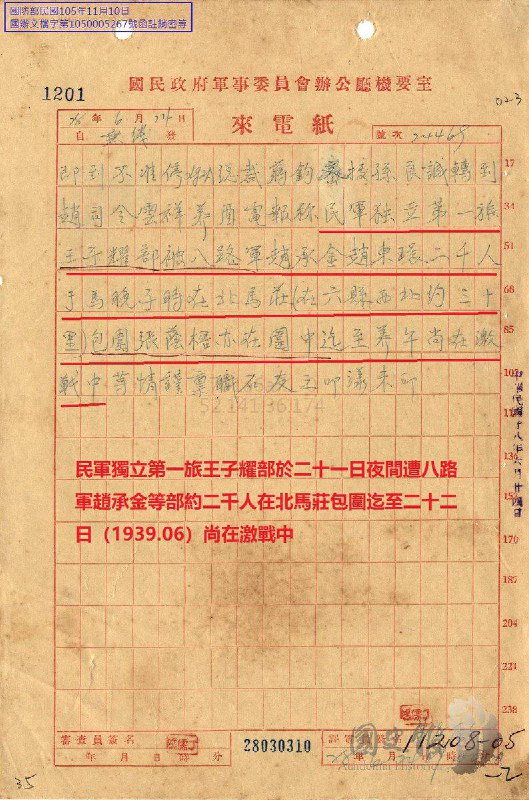 國防部民國105年11月10日
國辦文檔字第1050005267號函註銷密等
1201
國民政府軍事委員會辦公廳機要室
023
28年6月24日
自 無線 發
來電紙
號次
即到不准停
蔣鈞
接孫良誠轉到
趙司令雲祥養周電報称民軍独立第一旅
34
王子耀部被八路軍趙承金趙東環二千人
于馬晚子時在北馬莊(在六縣西北約三十
68
里包圍張蔭梧亦在圍中迄至養午尚在激
85
戰中等情謹稟職石友三叩漾未叩
102
52 141 36 174
民軍獨立第一旅王子耀部於二十一日夜間遭八路
軍趙承金等部約二千人在北馬莊包圍迄至二十二
日（1939.06）尚在激戰中
170
187
204
221
238
審查員簽名
年 月 日 時 分
28030310
11208-05
國史館
Academia Historica
35